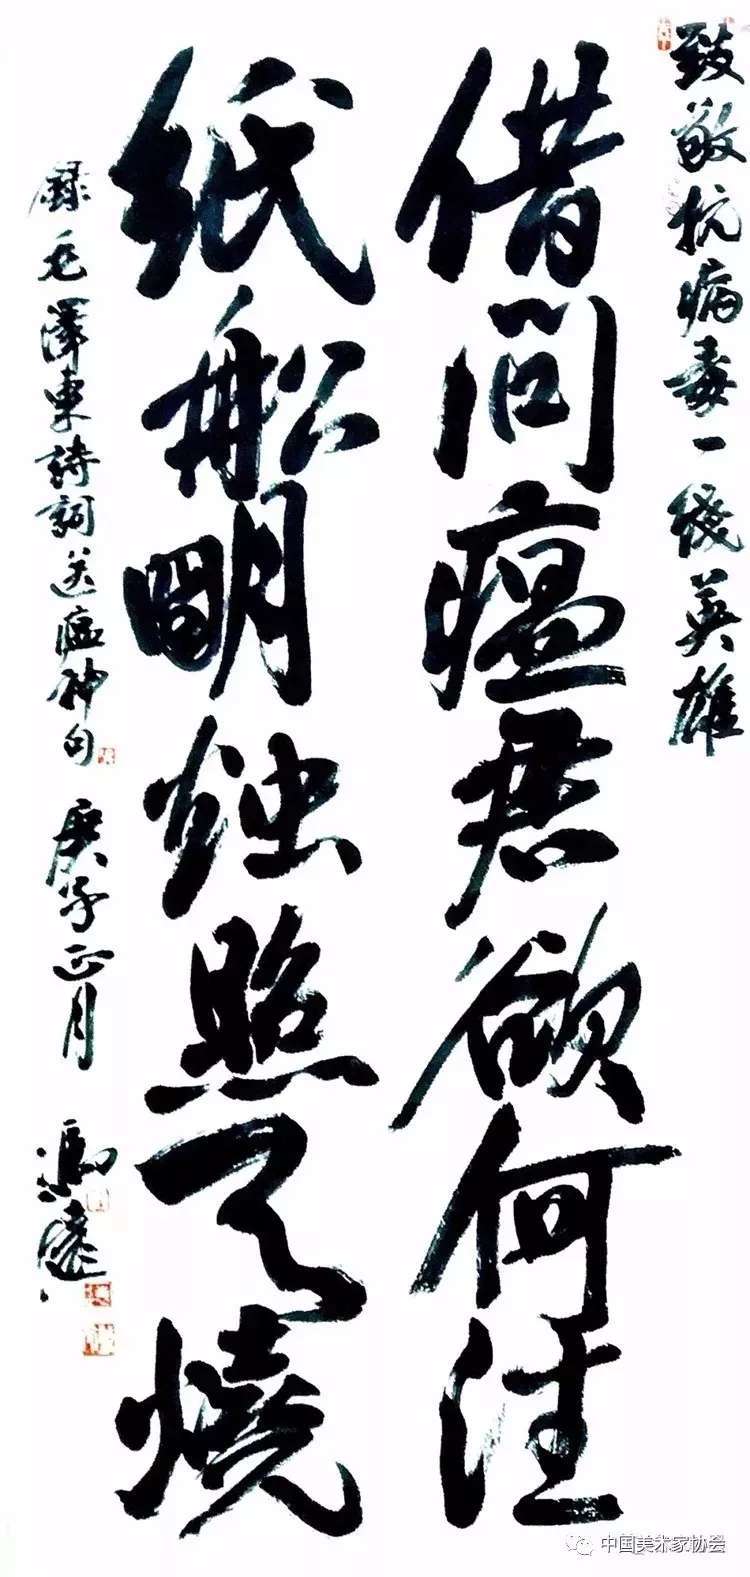 致敬抗病毒一线英雄
借问瘟君欲何往
纸船明烛照天烧
録毛澤東詩詞送瘟神句
庚子正月
馮遠
中国美术家协会